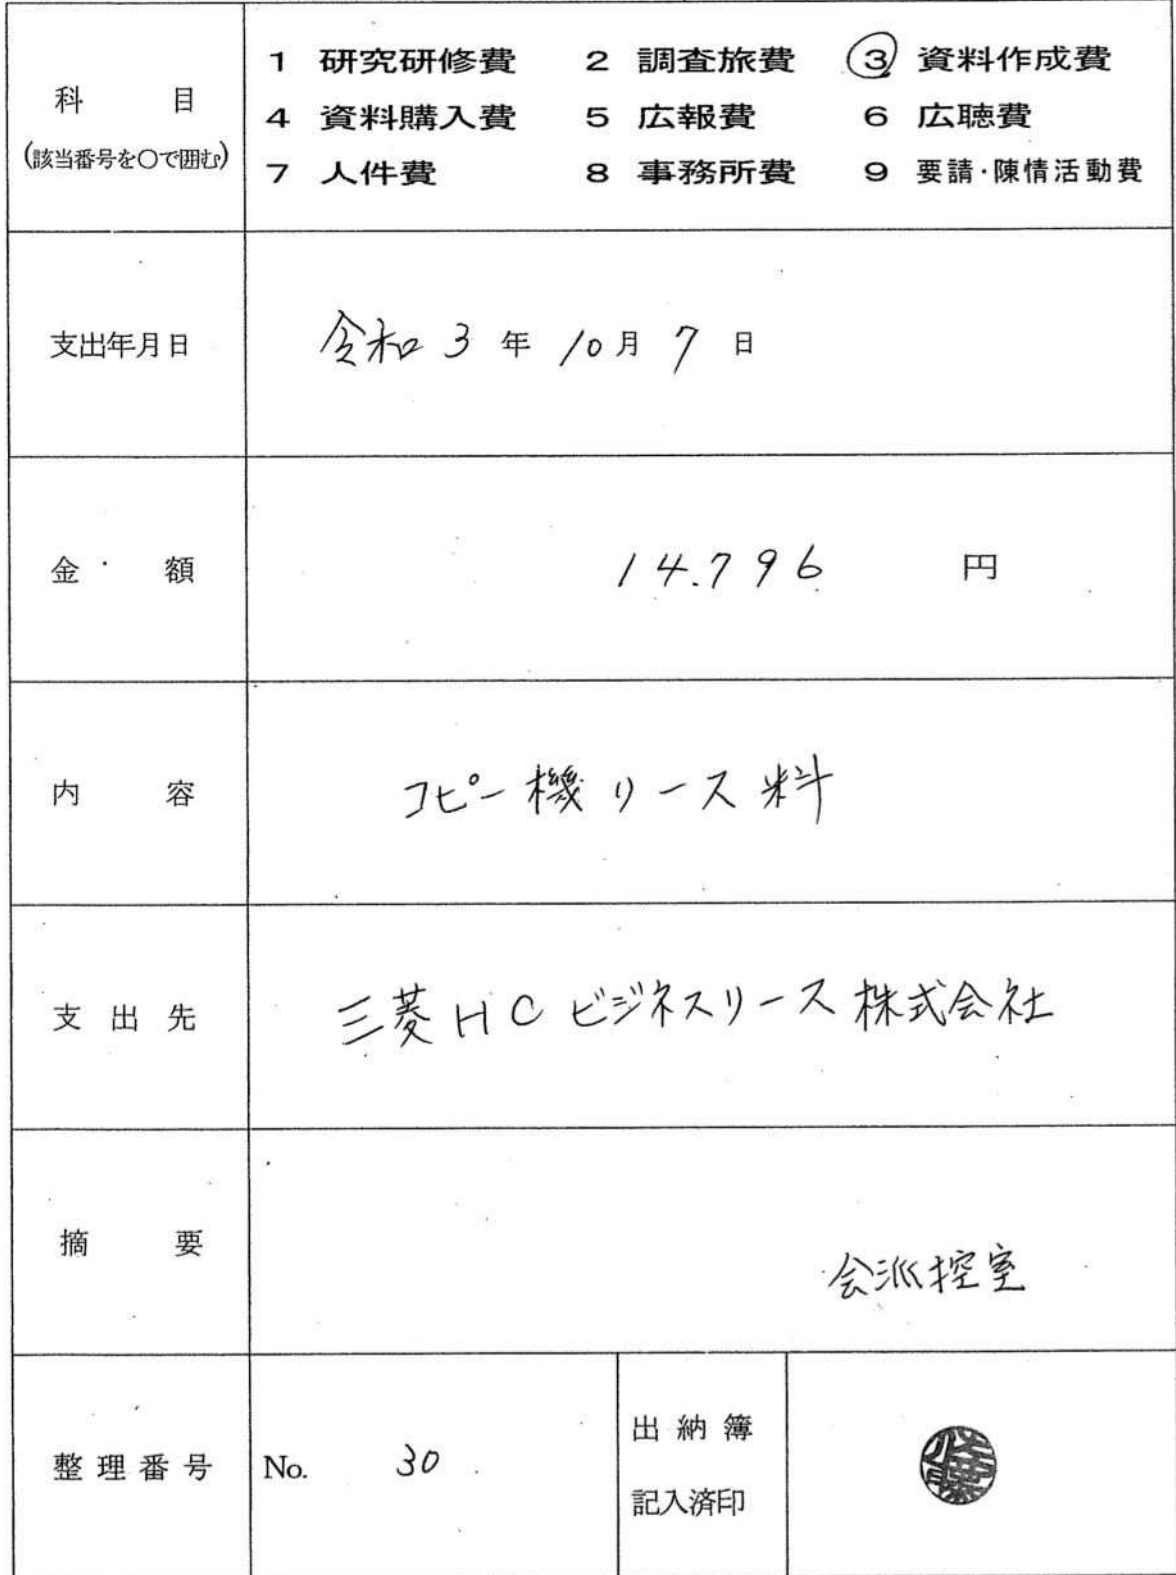 科 目
(該当番号を○で囲む)
1 研究研修費 2 調査旅費 ③ 資料作成費
4 資料購入費 5 広報費 6 広聴費
7 人件費 8 事務所費 9 要請・陳情活動費
支出年月日
令和 3 年 10月 7 日
金 額
14.796 円
内 容
コピー機リース料
支 出 先
三菱HCビジネスリース株式会社
摘 要
会派控室
整 理 番 号
No. 30
出 納 簿
記入済印